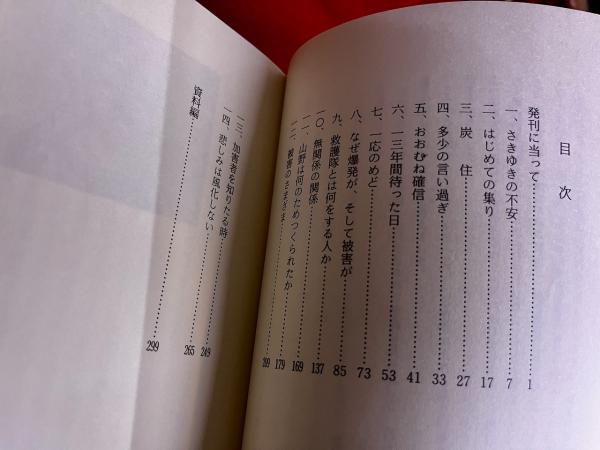 目次
発刊に当って……………1
一、さきゆきの不安……………7
二、はじめての集り……………17
三、炭　住……………27
四、多少の言い過ぎ……………33
五、おおむね確信……………41
六、一三年間待った日……………53
七、一応のめど……………73
八、なぜ爆発が、そして被害が……………85
九、救護隊とは何をする人か……………137
一〇、無関係の関係……………169
一一、山野は何のためつくられたか……………179
一二、被害のさまざま……………199
一三、加害者を知りたる時……………249
一四、悲しみは風化しない……………265
資料編……………299